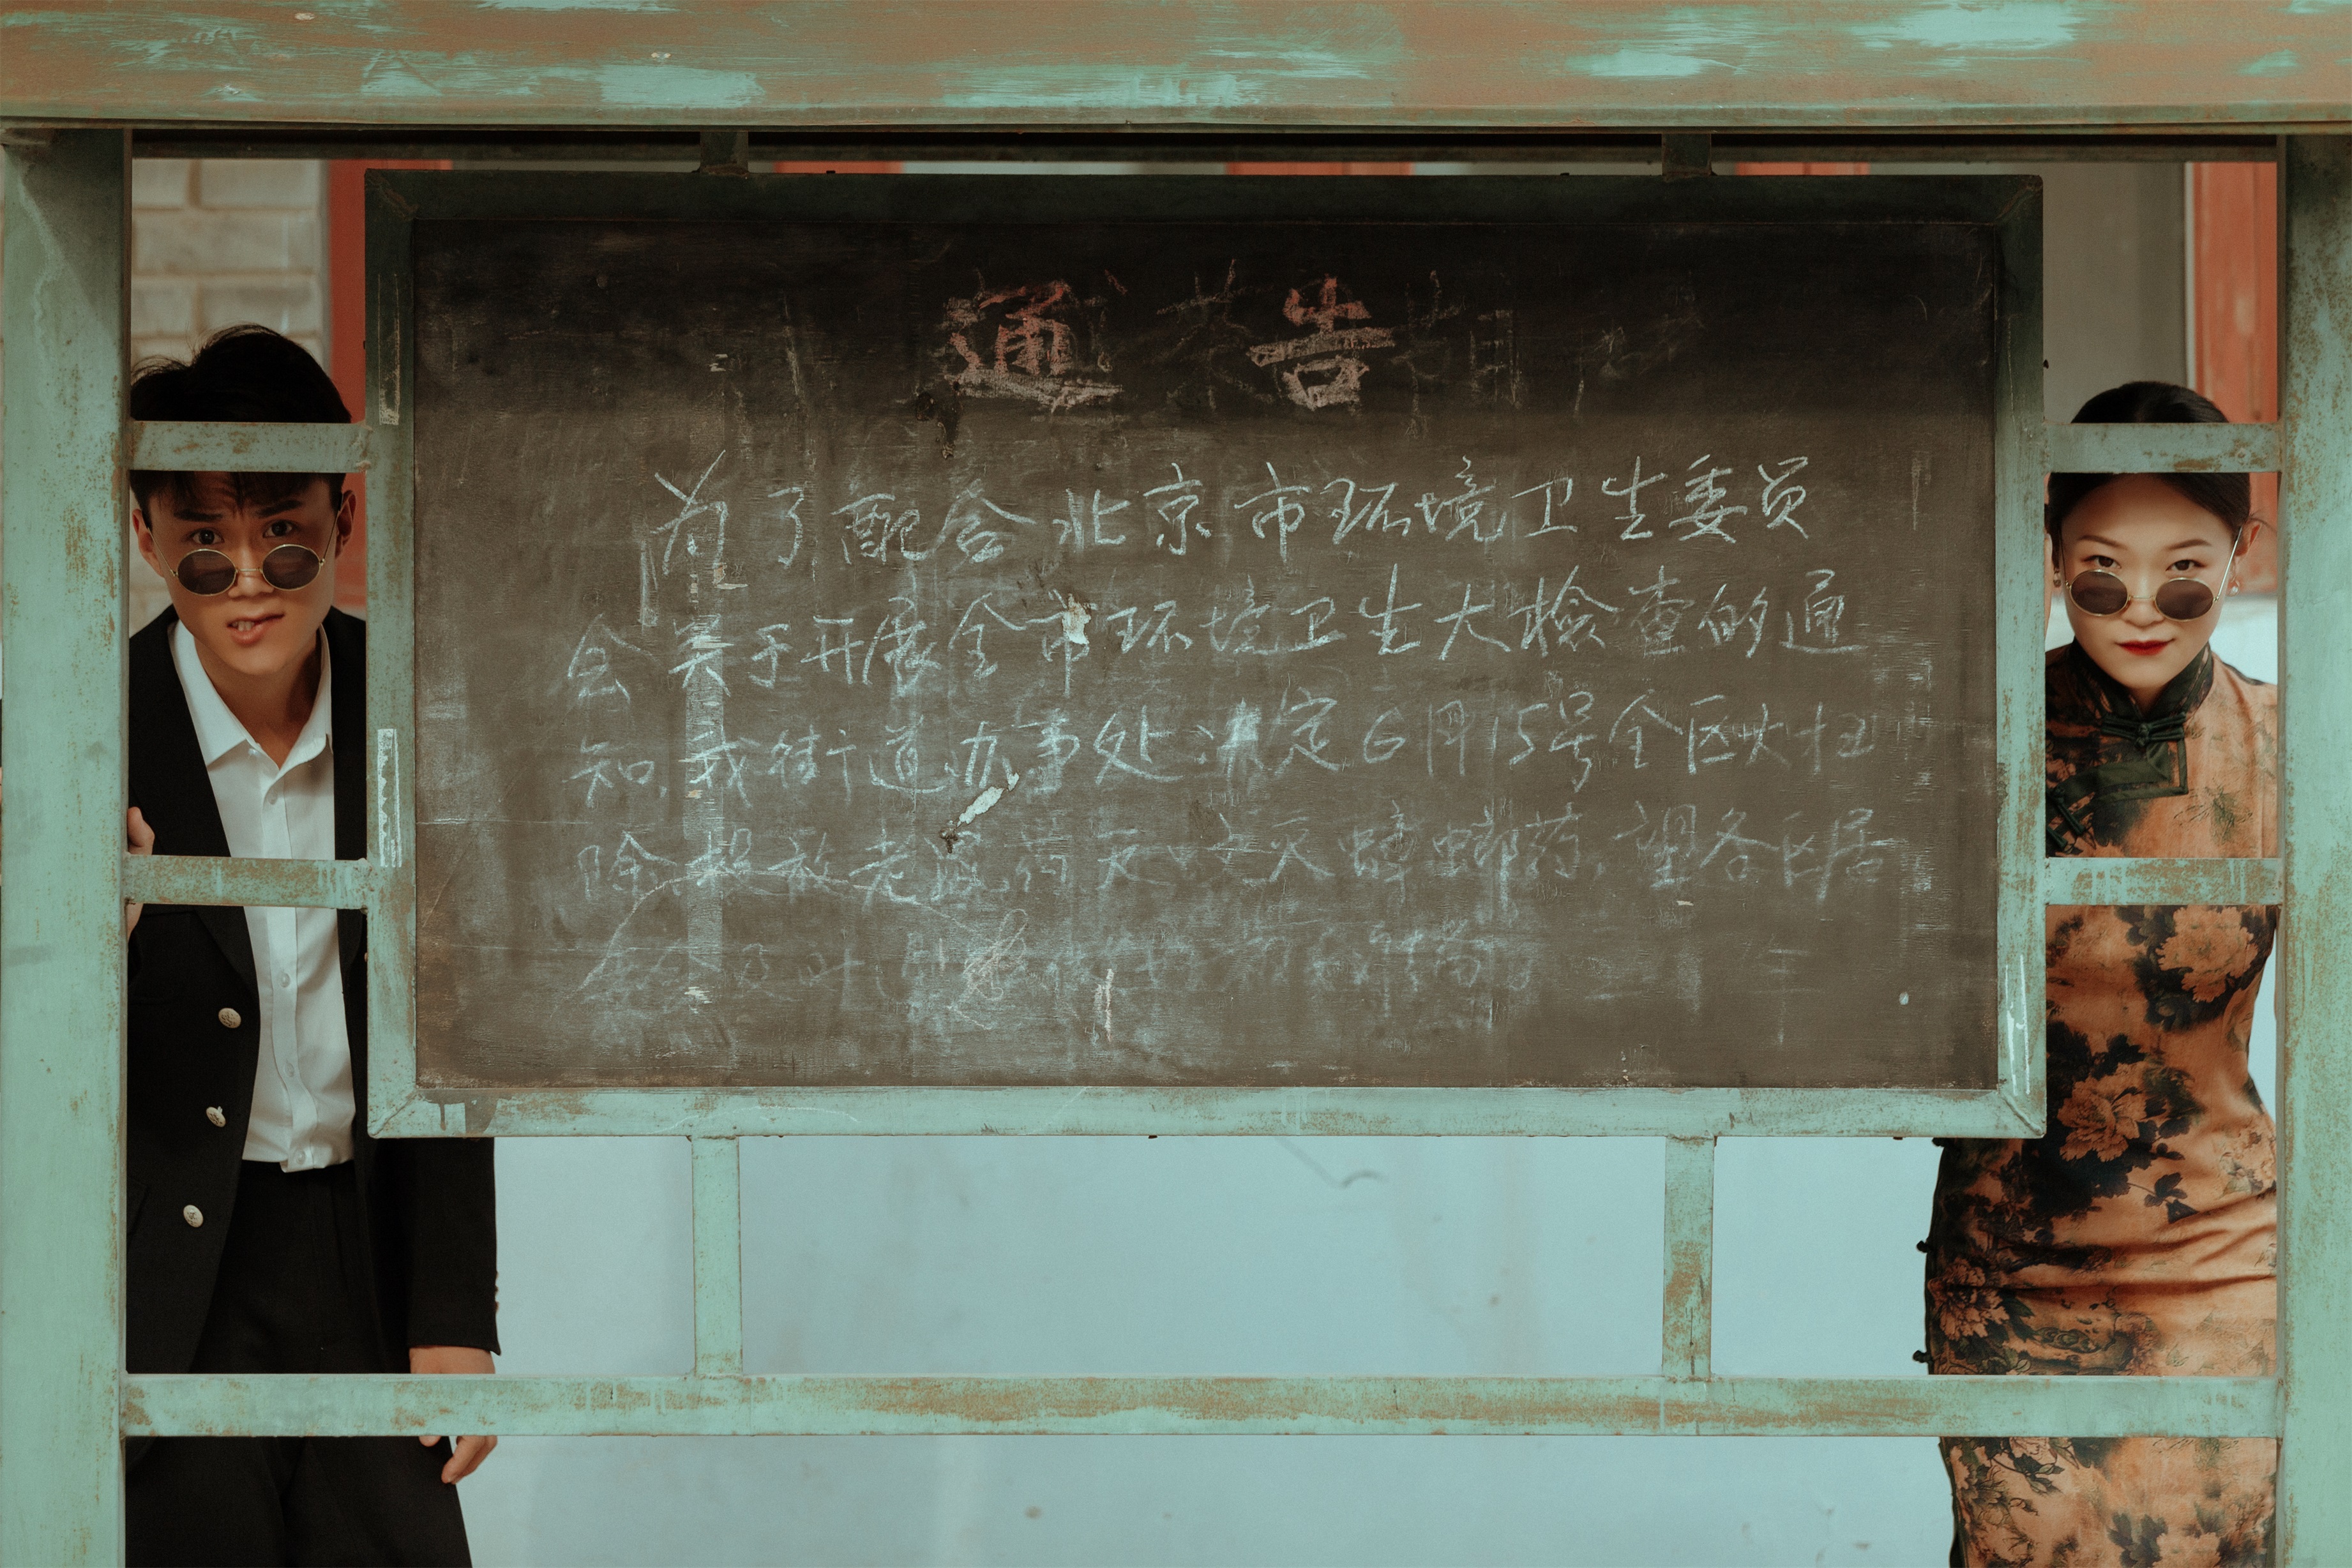 通告
为了配合北京市环境卫生委员
会关于开展全市环境卫生大檢查的通
知,我街道办事处决定6月15号全区大扫
除投放老鼠药灭 灭蟑螂药,望各区居
及时